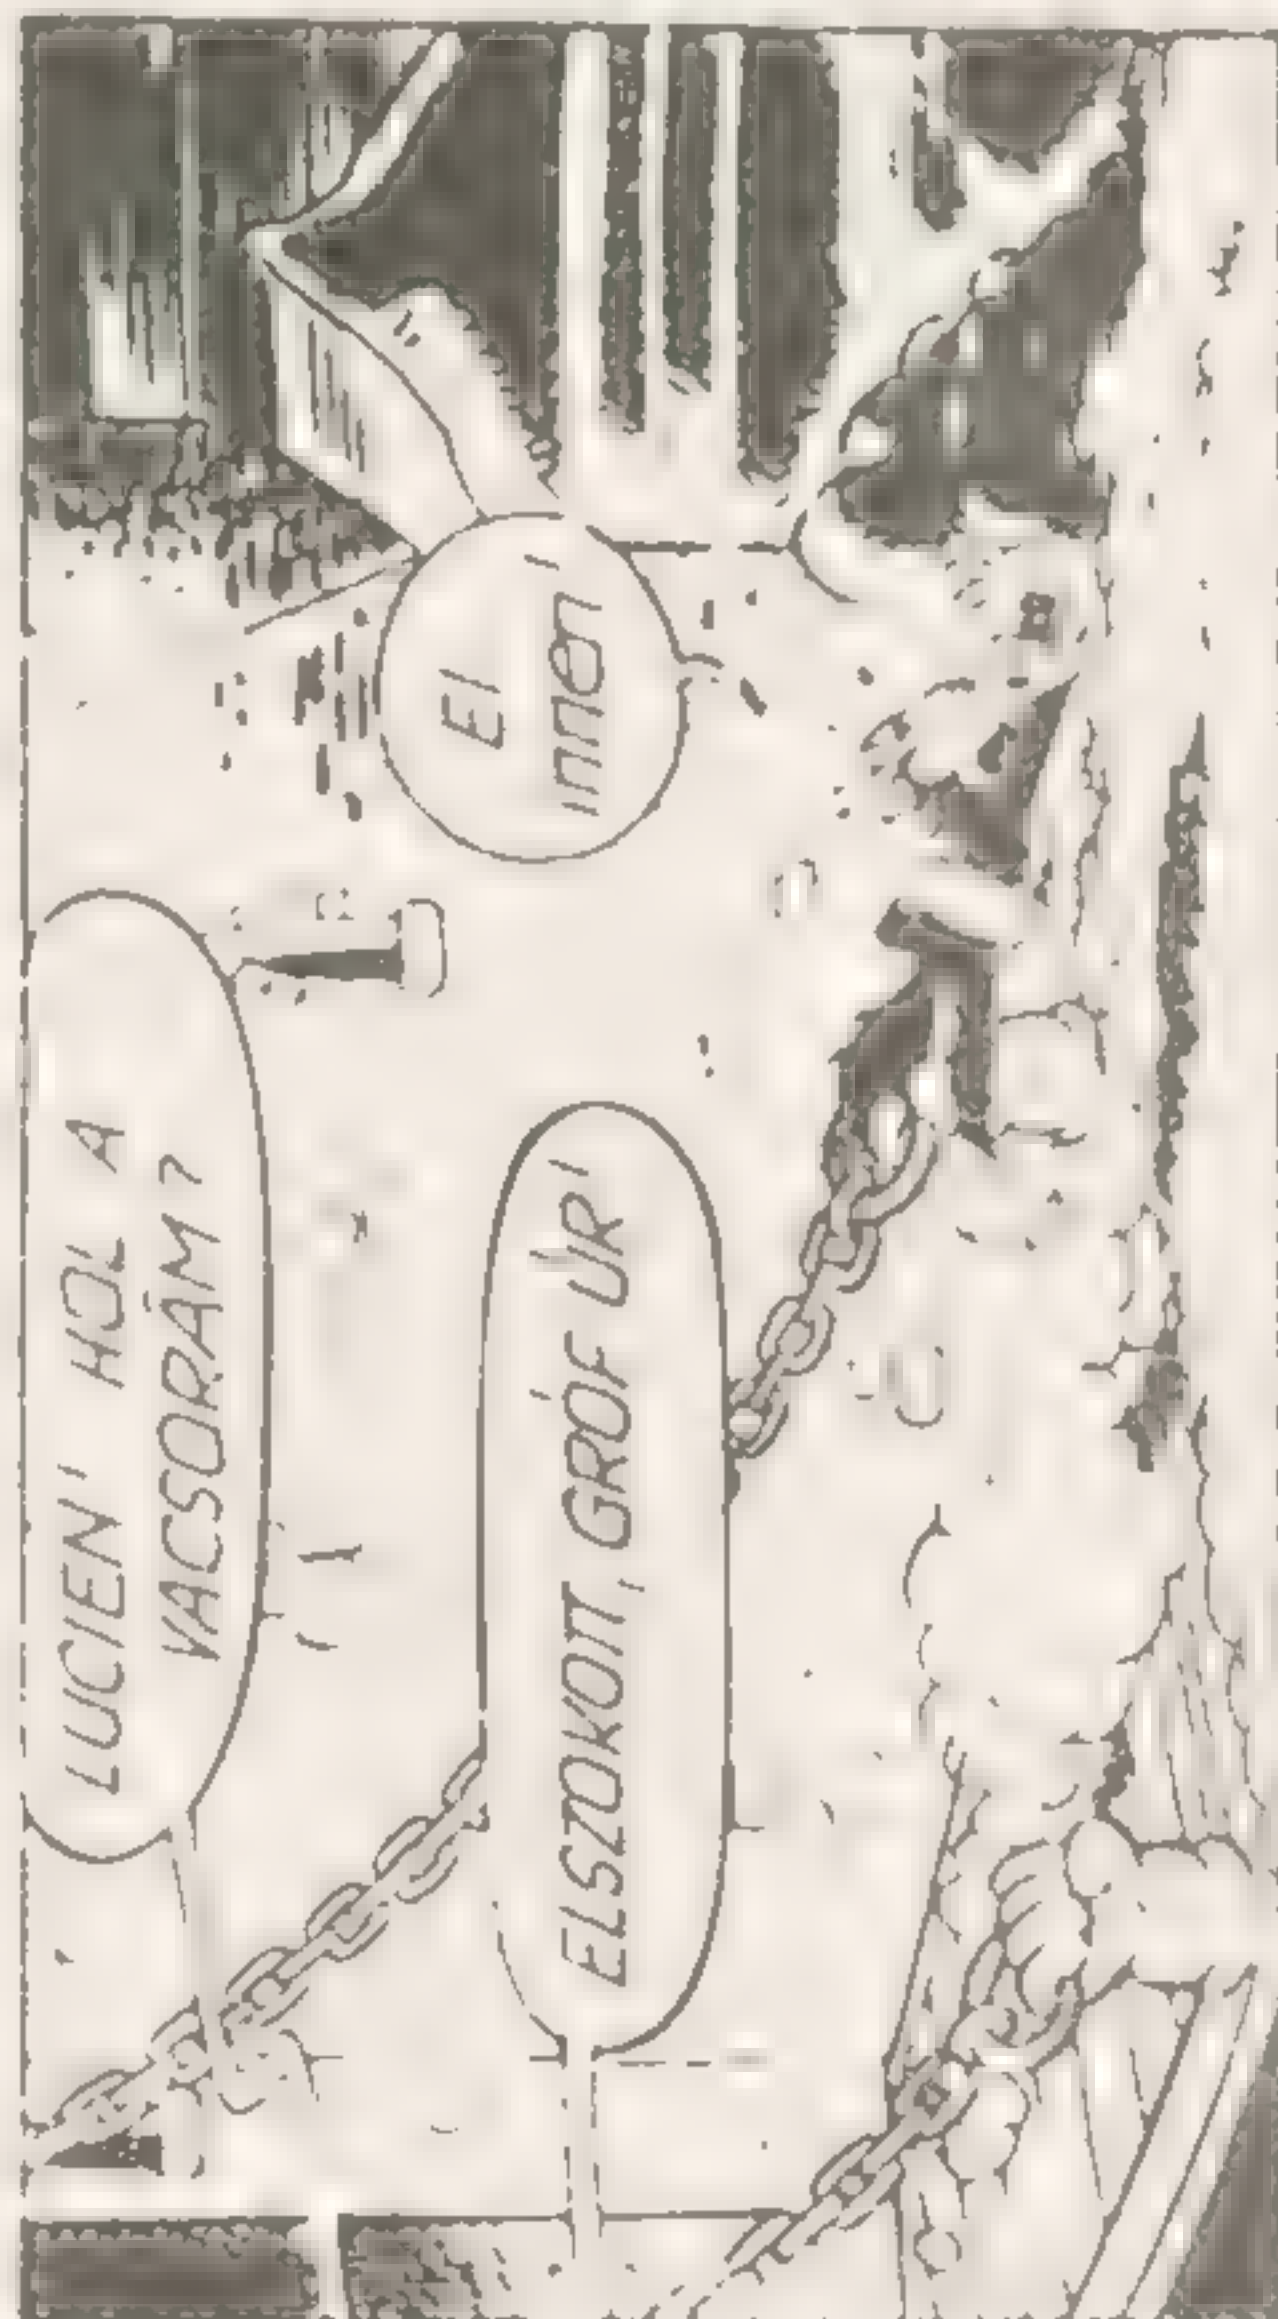 LUCIEN! HOL A
VACSORÁM?
ELSZOKOTT, GRÓF ÚR!
El
innen!